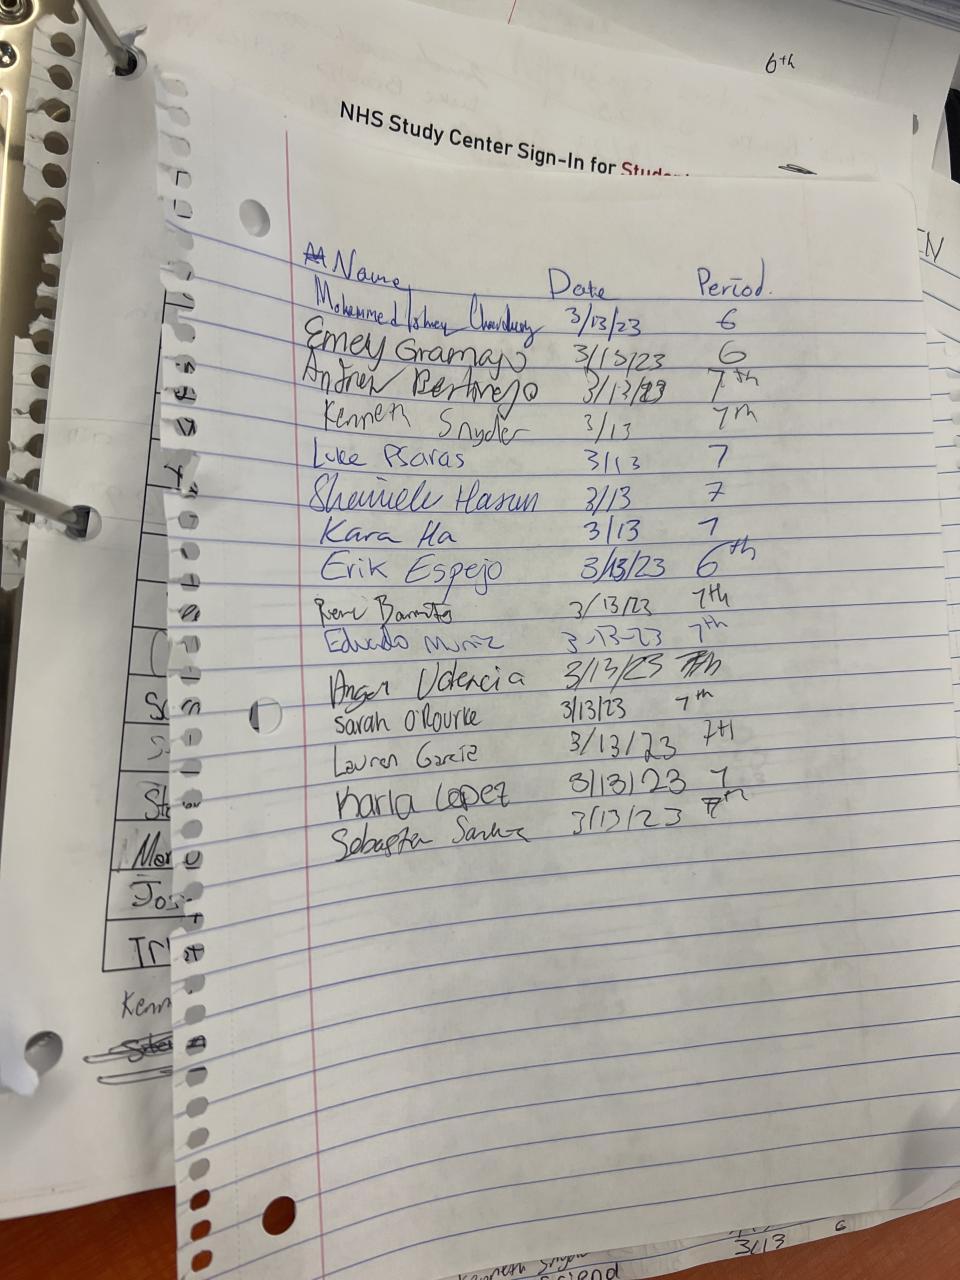 6th
NHS Study Center Sign-In for
Name Date Period.
Mohammed 3/13/23 6
Emey Gramajo 3/13/23 6
Andrew Bertrejo 3/13/23 7th
Kenneth Snyder 3/13 7th
Luke Psaras 3/13 7
Hasan 3/13 7
Kara Ha 3/13 7
Erik Espejo 3/13/23 6th
Rene 3/13/23 7th
Eduardo Muniz 3-13-23 7th
Angel Valencia 3/13/23 7th
Sarah O'Rourke 3/13/23 7th
Lauren Garcia 3/13/23 7th
Karla Lopez 3/13/23 7
3/13/23 7th
Kenneth
3/13 6